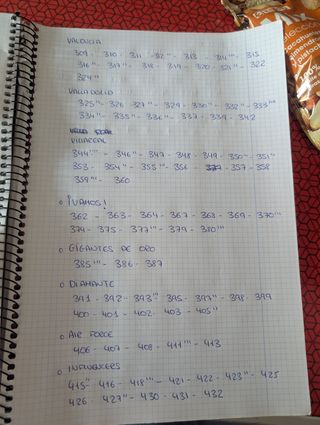 VALENCIA
309 - 310 - 311 - 312" - 313 - 314''' - 315
316" - 317" - 318 - 319 - 320 - 321" - 322
324"
VALLADOLID
325" - 326 - 327" - 329 - 330" - 332" - 333'''
334" - 335" - 336" - 337 - 339 - 342
VILLAREAL
344''' - 346" - 347 - 348 - 349 - 350" - 351"
353 - 354" - 355''' - 356 - 357 - 358
359''' - 360
○ ¡VAMOS!
362 - 363 - 364 - 367 - 368 - 369 - 370'''
374 - 375 - 377''' - 379 - 380'''
○ GIGANTES DE ORO
385''' - 386 - 387
○ DIAMANTE
391 - 392 - 393''' - 395 - 397" - 398 - 399
400 - 401 - 402 - 403 - 405"
○ AIR FORCE
406 - 407 - 408 - 411''' - 413
○ INFLUENCERS
415" - 416 - 418''' - 421 - 422 - 423" - 425
426 - 427" - 430 - 431 - 432
100%